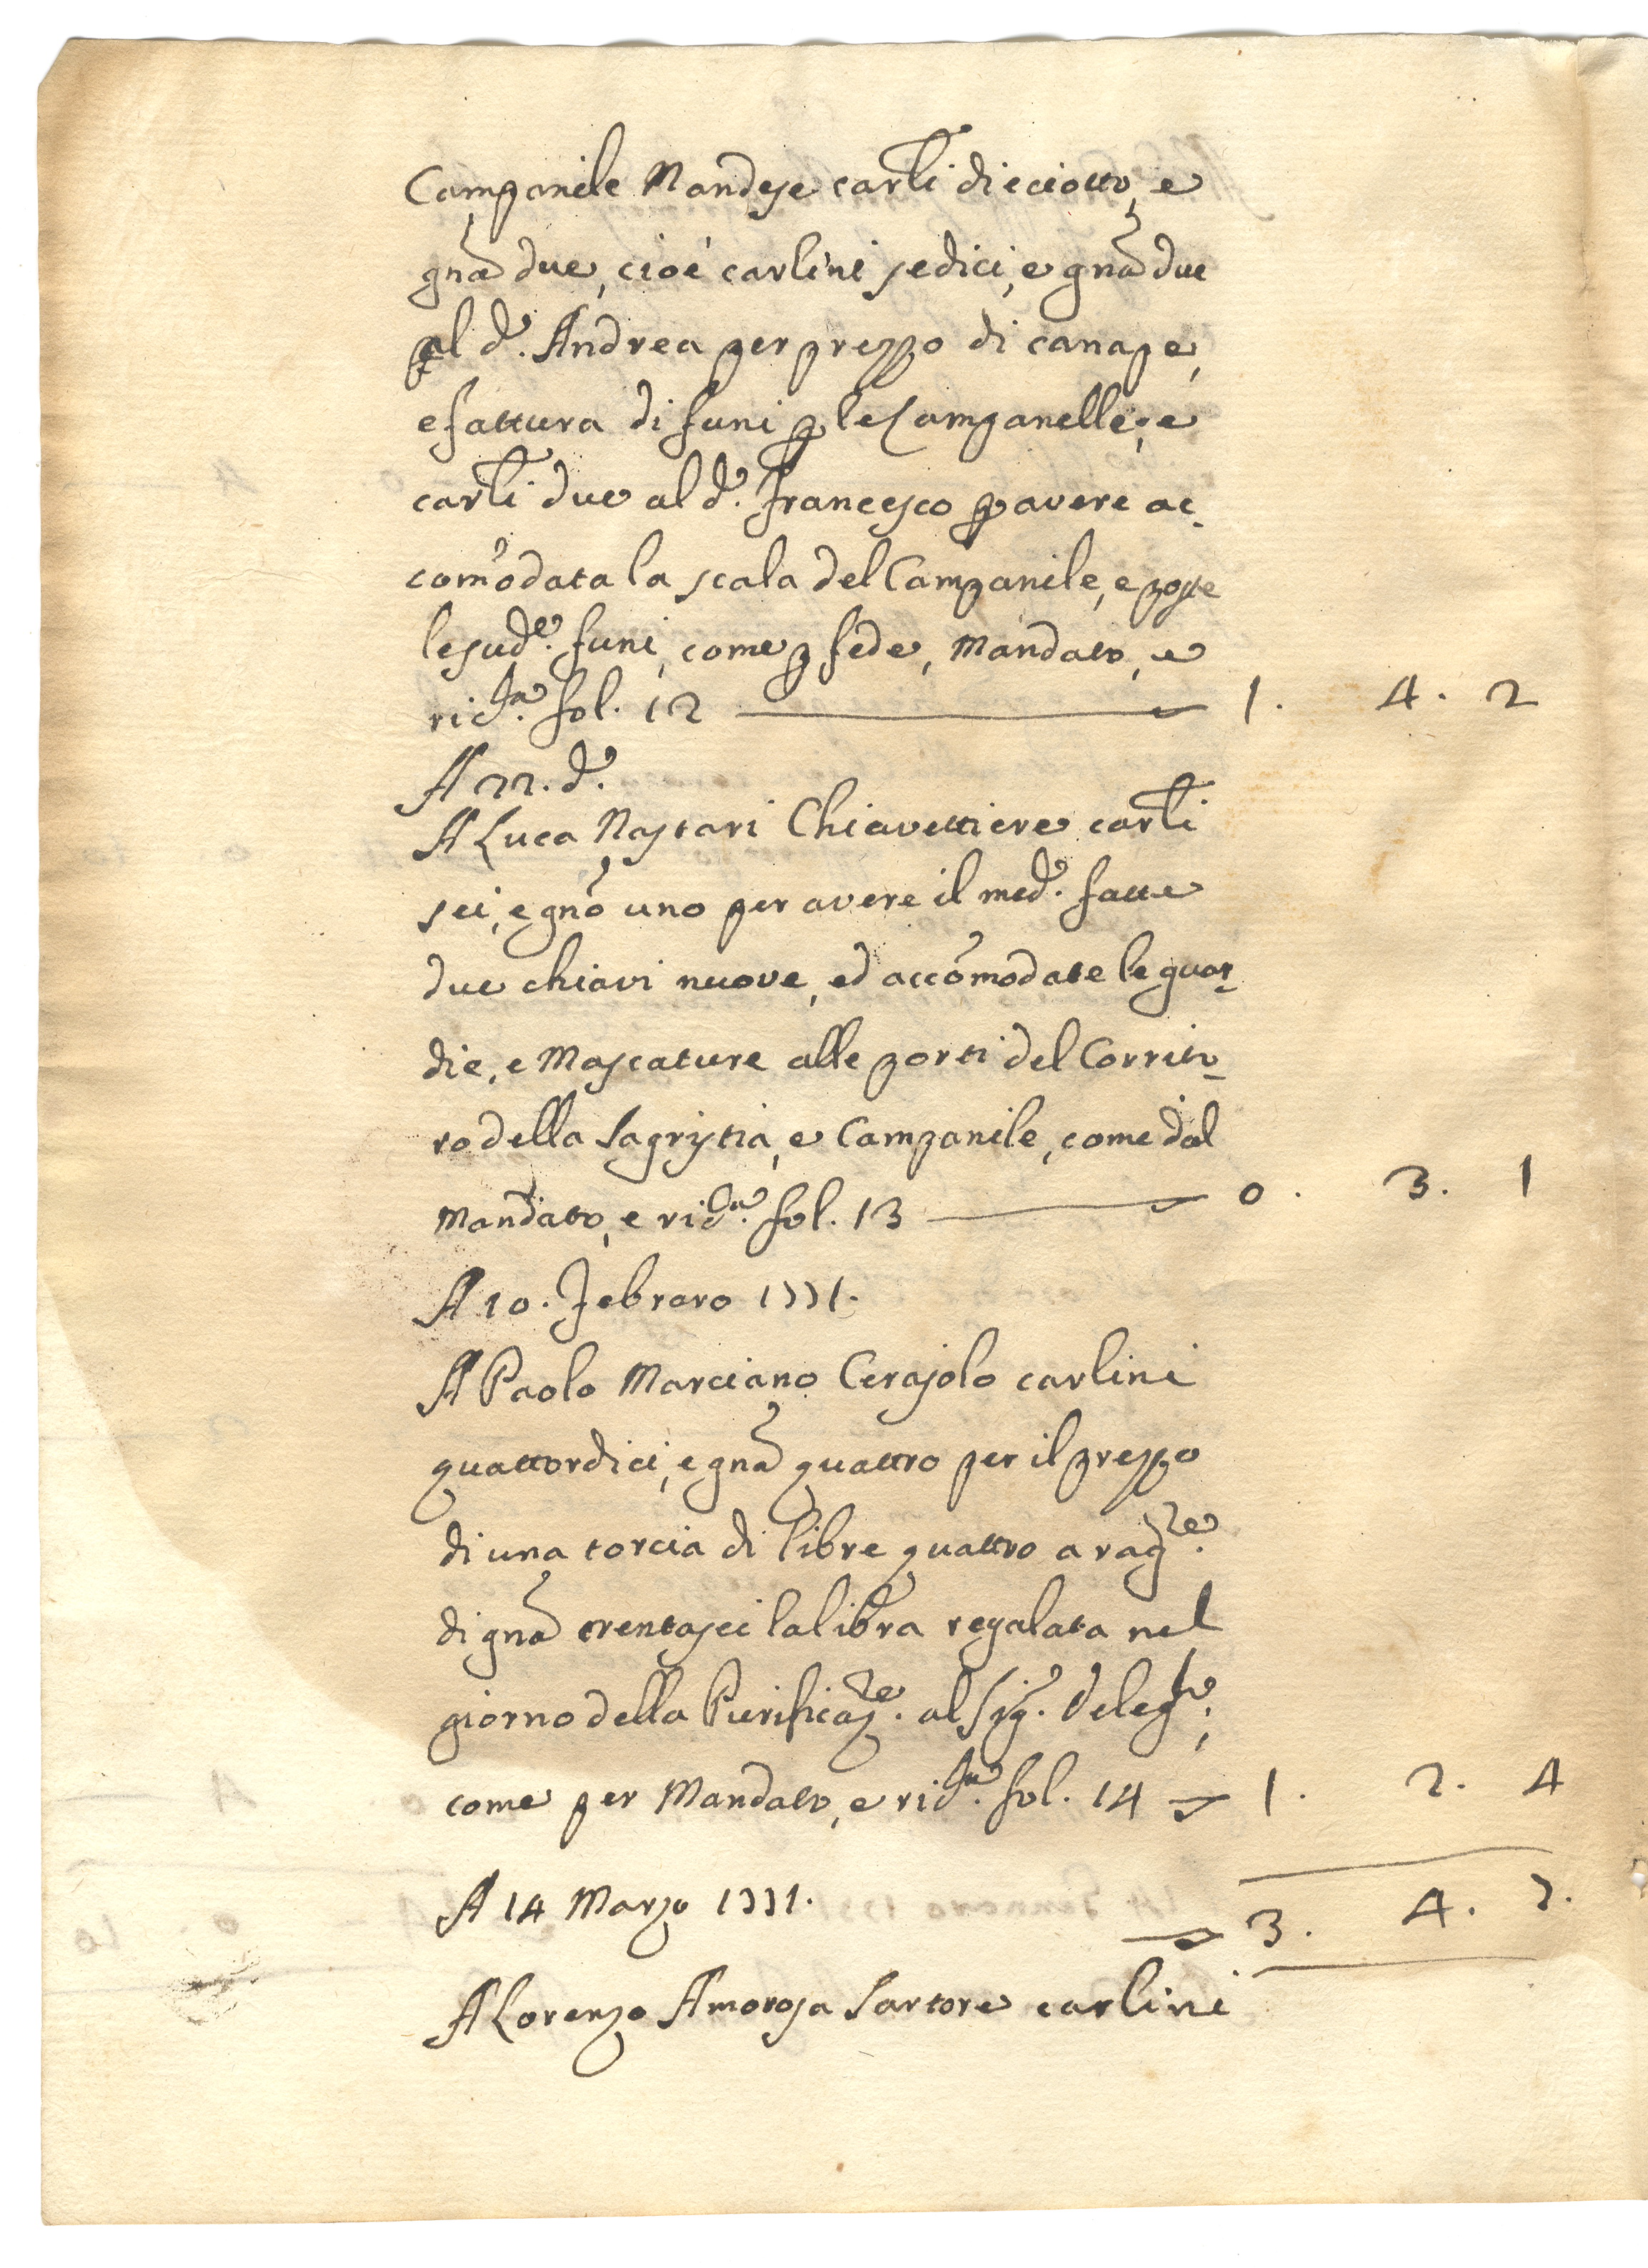 Campanile Mandese carlĩ dieciotto, e
gnã due, cioè carlini sedici, e gnã due
al d.º Andrea per prezzo di canape,
e fattura di funi p le Campanelle; e
carlĩ due al d.º Francesco p avere ac-
com̃odata la scala del Campanile, e poste
le sud.e funi, come p fede, Mandato, e
ric.ta fol. 12 1. 4. 2
A 22. d.º
A Luca Nastari Chiavettiere carlĩ
sei, e gnõ uno per avere il med.º fatte
due chiavi nuove, ed accom̃odate le guar-
die, e Mascature alle porti del Corrito-
ro della Sagristia, e Campanile, come dal
Mandato, e ric.ta fol. 13 0. 3. 1
A 10. Febraro 1771.
A Paolo Marciano Cerajolo carlini
quattordici, e gnã quattro per il prezzo
di una torcia di libre quattro a rag.ne
di gnã trentasei la libra regalata nel
giorno della Purificaz.ne al Sig.r Deleg.to,
come per Mandato, e ric.ta fol. 14 1. 2. 4
A 14 Marzo 1771.
3. 4. 7.
A Lorenzo Amorosa Sartore carlini